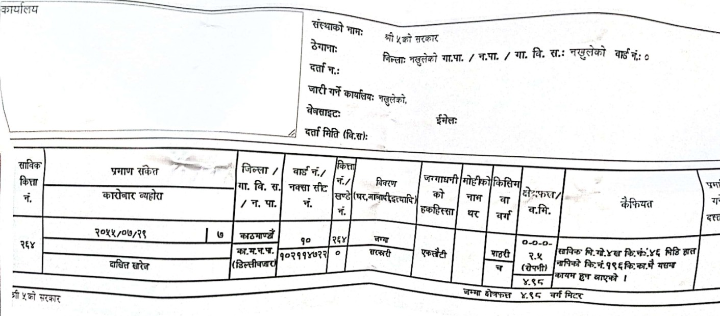 कार्यालय
संस्थाको नामः श्री ५को सरकार
ठेगानाः जिल्लाः नखुलेको गा.पा. / न.पा. / गा. वि. स.: नखुलेको वार्ड नं.: ०
दर्ता नं.:
जारी गर्ने कार्यालयः नखुलेको,
वेवसाइटः ईमेलः
दर्ता मिति (वि.स):
साविक कित्ता नं. प्रमाण संकेत कारोबार व्यहोरा जिल्ला / गा. वि. स. / न. पा. वार्ड नं./ नक्सा सीट नं. कित्ता नं./ खण्डे नं. विवरण (घर,मोहीइत्यादि) जग्गाधनी को हकहिस्सा मोहीको नाम थर किसिम वा वर्ग क्षेत्रफल/ व.मि. कैफियत
२६४ २०५५/०७/२९ ७ काठमाण्डौं १० २६४ जग्गा ०-०-०-
का.म.न.पा. १०२११४७२२ ० सरकारी एकलौटी शहरी २.५
दाखिल खारेज (डिल्लीबजार) च (रोपनी)
४.९८
साविक मि.नं.४ख कि.नं.४६ मिति हाल
नापिको कि.नं.१९६कि.का.मै यसमा
कायम हुन आएको ।
श्री ५को सरकार जम्मा क्षेत्रफल ४.९८ वर्ग मिटर